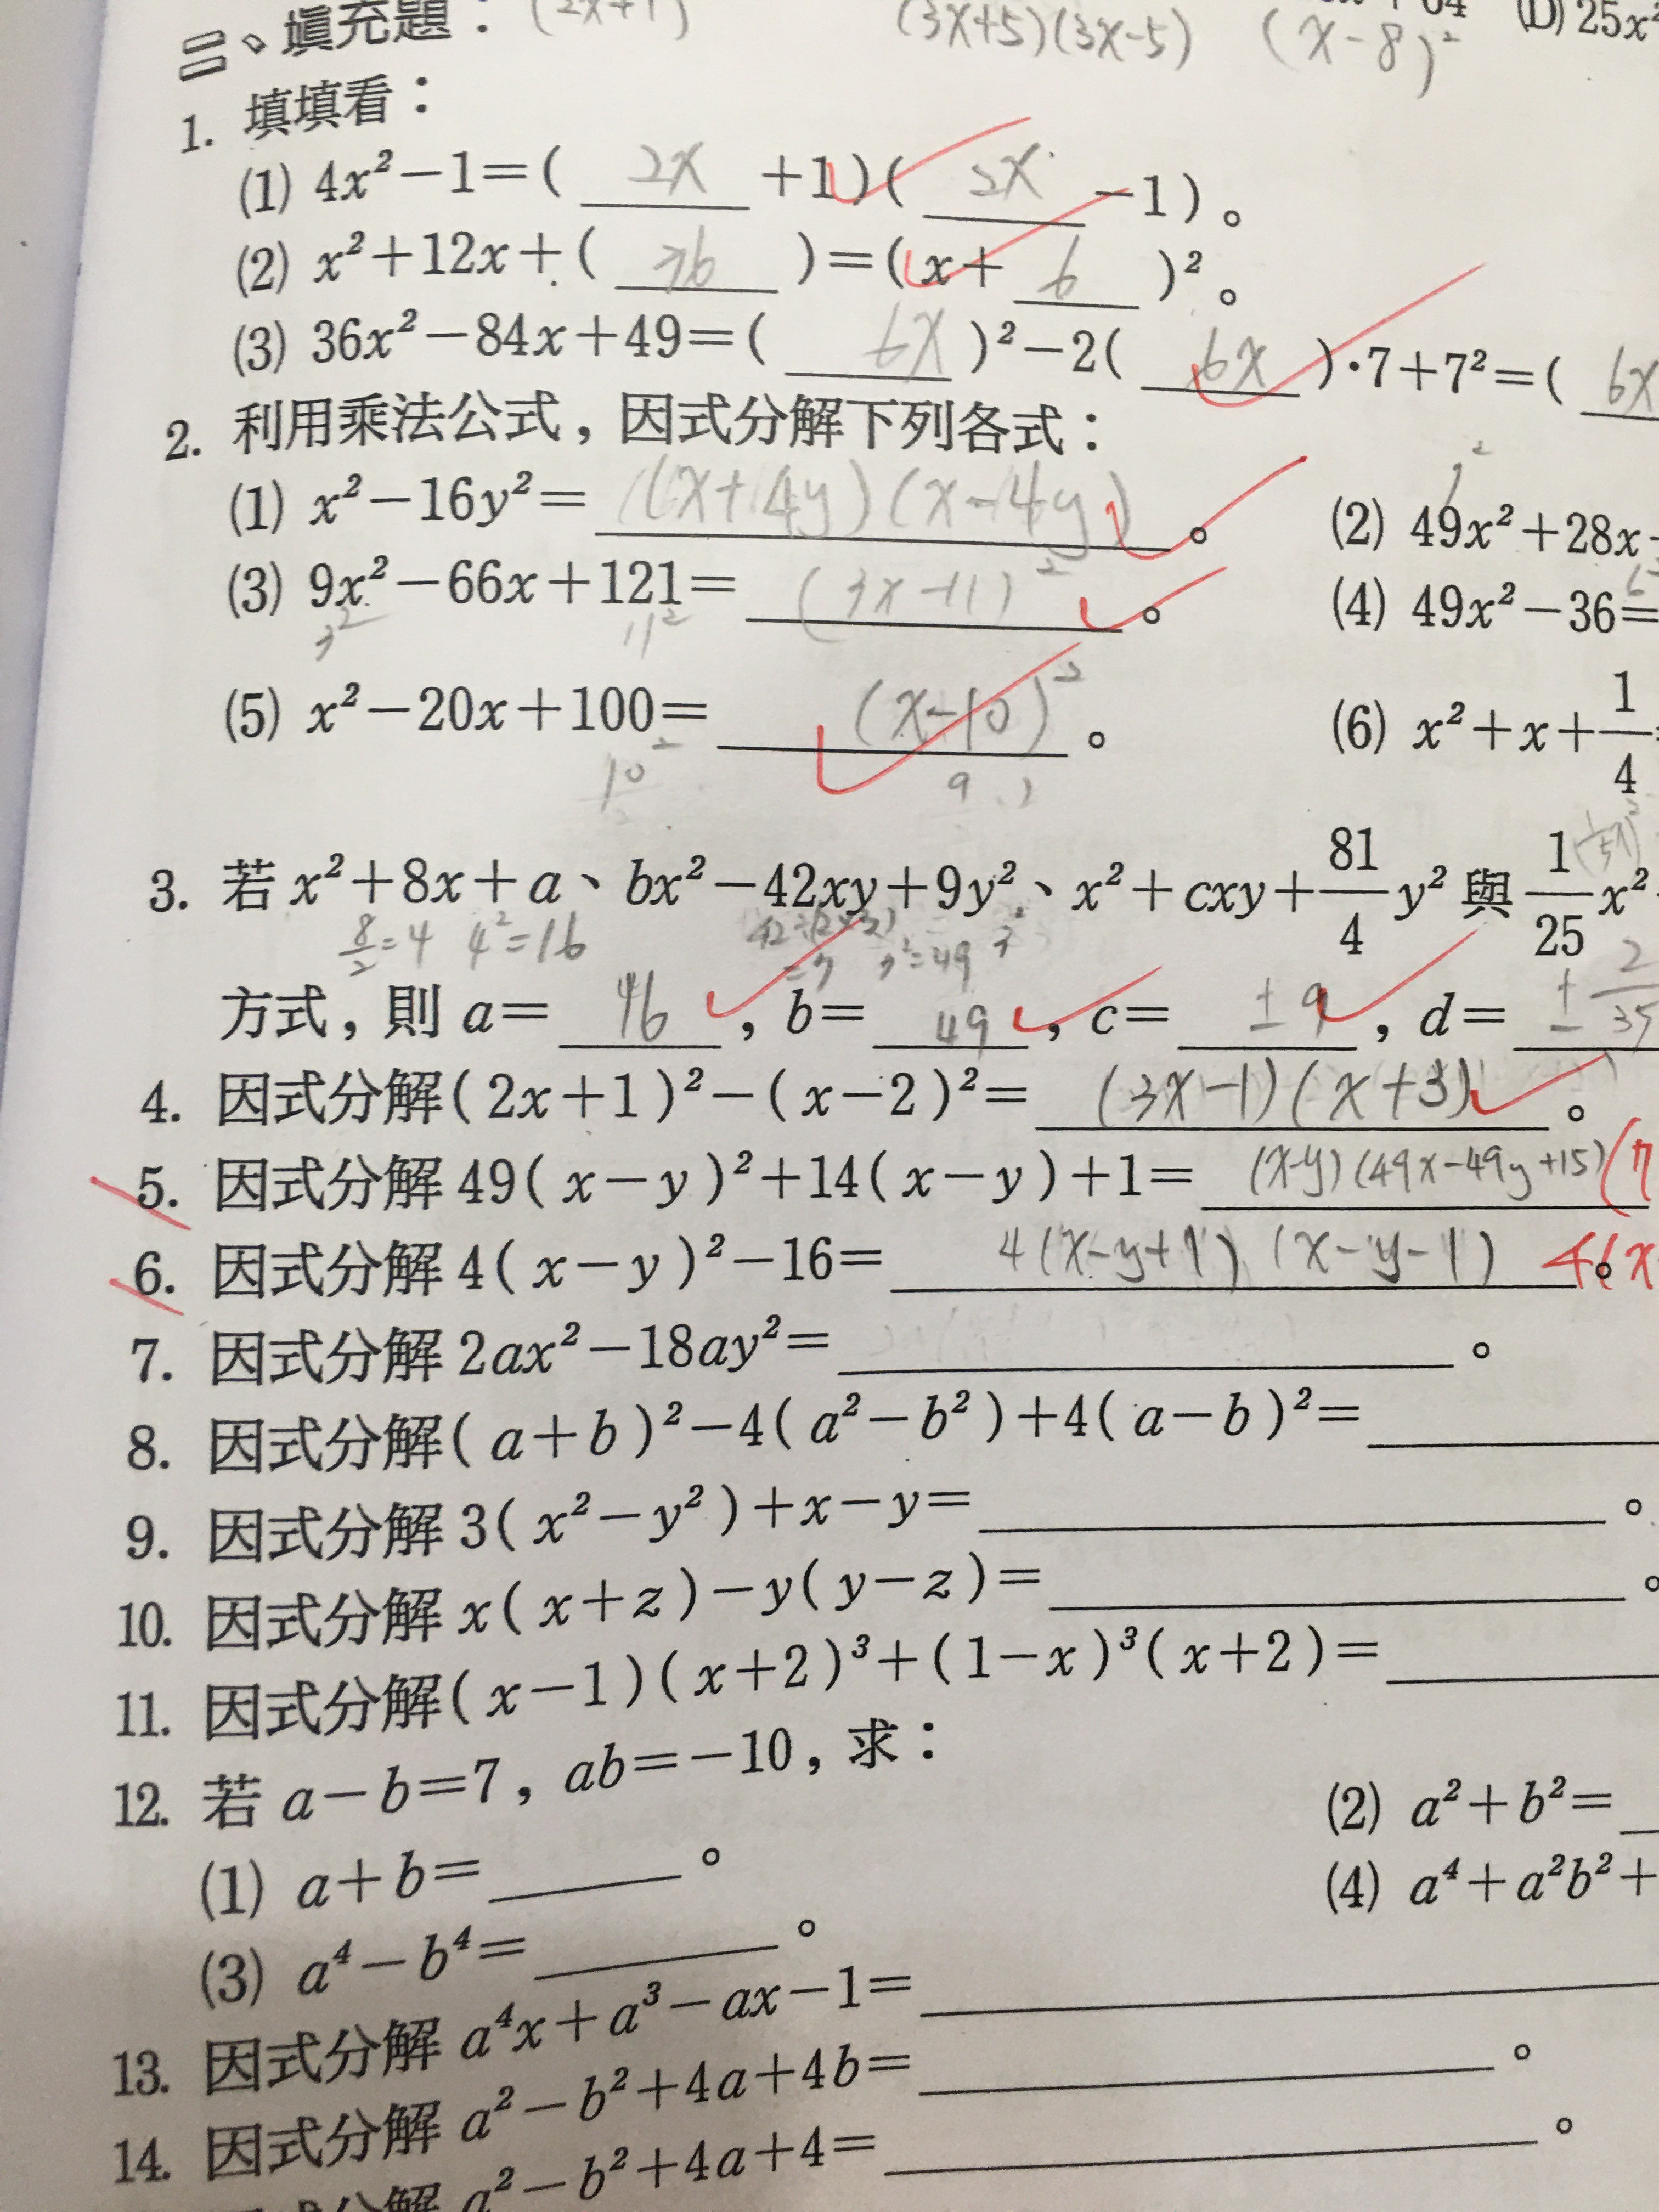 二、填充題： (2x+1) (3x+5)(3x-5) (x-8)² 64 (D) 25x²
1. 填填看：
(1) 4x²-1=( 2x +1)( 2x -1)。
(2) x²+12x+( 36 )=(x+ 6 )²。
(3) 36x²-84x+49=( 6x )²-2( 6x )·7+7²=( 6x
2. 利用乘法公式，因式分解下列各式：
(1) x²-16y²= (x+4y)(x-4y) 。 (2) 49x²+28x
(3) 9x²-66x+121= (3x-11)² 。 (4) 49x²-36=
11²
(5) x²-20x+100= (x-10)² 。 (6) x²+x+1/4
10²
3. 若 x²+8x+a、bx²-42xy+9y²、x²+cxy+81/4 y² 與 1/25 x²
8/2=4 4²=16 42÷(2×3)=7 7²=49
方式，則 a= 16 ，b= 49 ，c= ±9 ，d= ± 2/35
4. 因式分解(2x+1)²-(x-2)²= (3x-1)(x+3) 。
5. 因式分解 49(x-y)²+14(x-y)+1= (x-y)(49x-49y+15) (7
6. 因式分解 4(x-y)²-16= 4(x-y+1)(x-y-1) 。 4(x
7. 因式分解 2ax²-18ay²= 。
8. 因式分解(a+b)²-4(a²-b²)+4(a-b)²=
9. 因式分解 3(x²-y²)+x-y= 。
10. 因式分解 x(x+z)-y(y-z)= 。
11. 因式分解(x-1)(x+2)³+(1-x)³(x+2)=
12. 若 a-b=7，ab=-10，求：
(1) a+b= 。 (2) a²+b²=
(3) a⁴-b⁴= 。 (4) a⁴+a²b²+
13. 因式分解 a⁴x+a³-ax-1=
14. 因式分解 a²-b²+4a+4b= 。
因式分解 a²-b²+4a+4= 。